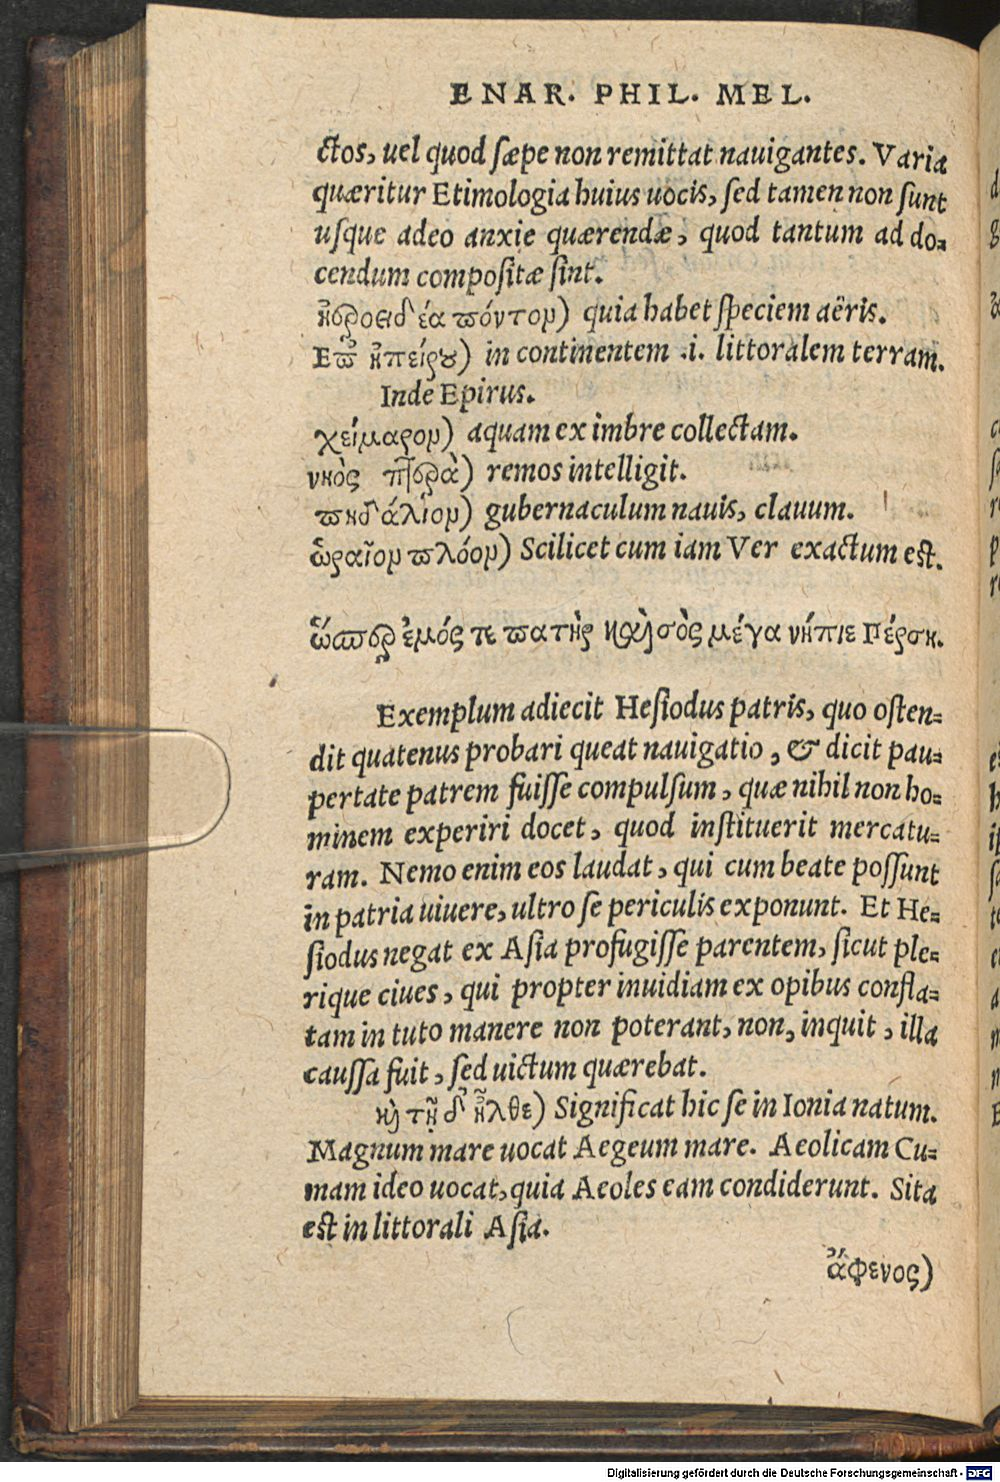 ENAR. PHIL. MEL.
ctos, uel quod sæpe non remittat nauigantes. Varia
quæritur Etimologia huius uocis, sed tamen non sunt
usque adeo anxie quærendæ, quod tantum ad do-
cendum compositæ sint.
ἠεροειδέα πόντον) quia habet speciem aëris.
Επ᾽ ἠπείρου) in continentem .i. littoralem terram.
Inde Epirus.
χείμαρον) aquam ex imbre collectam.
νηὸς πτερὰ) remos intelligit.
πηδάλιον) gubernaculum nauis, clauum.
ὡραῖον πλόον) Scilicet cum iam Ver exactum est.
ὥσπερ ἐμός τε πατὴρ καὶ σὸς μέγα νήπιε Πέρση.
Exemplum adiecit Hesiodus patris, quo osten-
dit quatenus probari queat nauigatio, & dicit pau-
pertate patrem fuisse compulsum, quæ nihil non ho-
minem experiri docet, quod instituerit mercatu-
ram. Nemo enim eos laudat, qui cum beate possunt
in patria uiuere, ultro se periculis exponunt. Et He-
siodus negat ex Asia profugisse parentem, sicut ple-
rique ciues, qui propter inuidiam ex opibus confla-
tam in tuto manere non poterant, non, inquit, illa
caussa fuit, sed uictum quærebat.
καὶ τῇ δ᾽ ἦλθε) Significat hic se in Ionia natum.
Magnum mare uocat Aegeum mare. Aeolicam Cu-
mam ideo uocat, quia Aeoles eam condiderunt. Sita
est in littorali Asia.
ἄφενος)
Digitalisierung gefördert durch die Deutsche Forschungsgemeinschaft - DFG